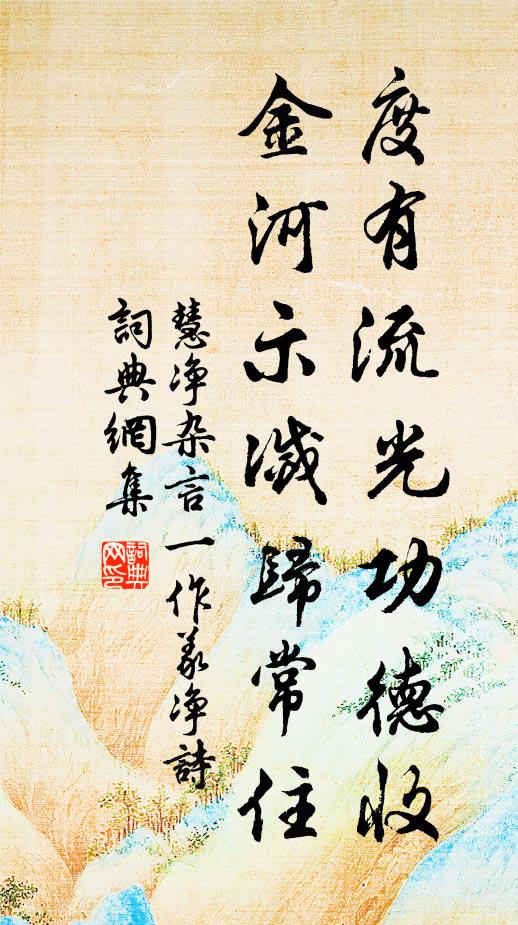 度有流光功德收
金河示滅歸常住
慧净杂言一作義净詩
詞典網集
詞典网印